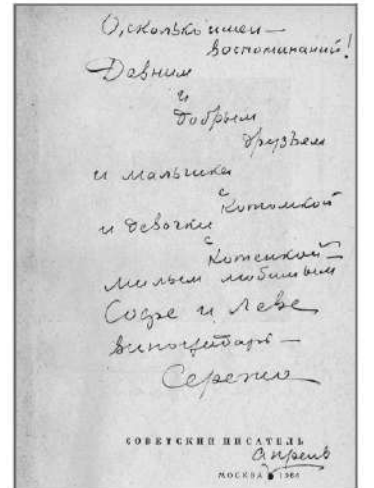 О, сколько имен —
воспоминаний!
Давним
и
добрым
друзьям
и мальчика
с
котомкой
и девочки
с
котенкой —
милым любимым
Софе и Леве
Виноградарь —
Сережа
СОВЕТСКИЙ ПИСАТЕЛЬ
апрель
МОСКВА 1964